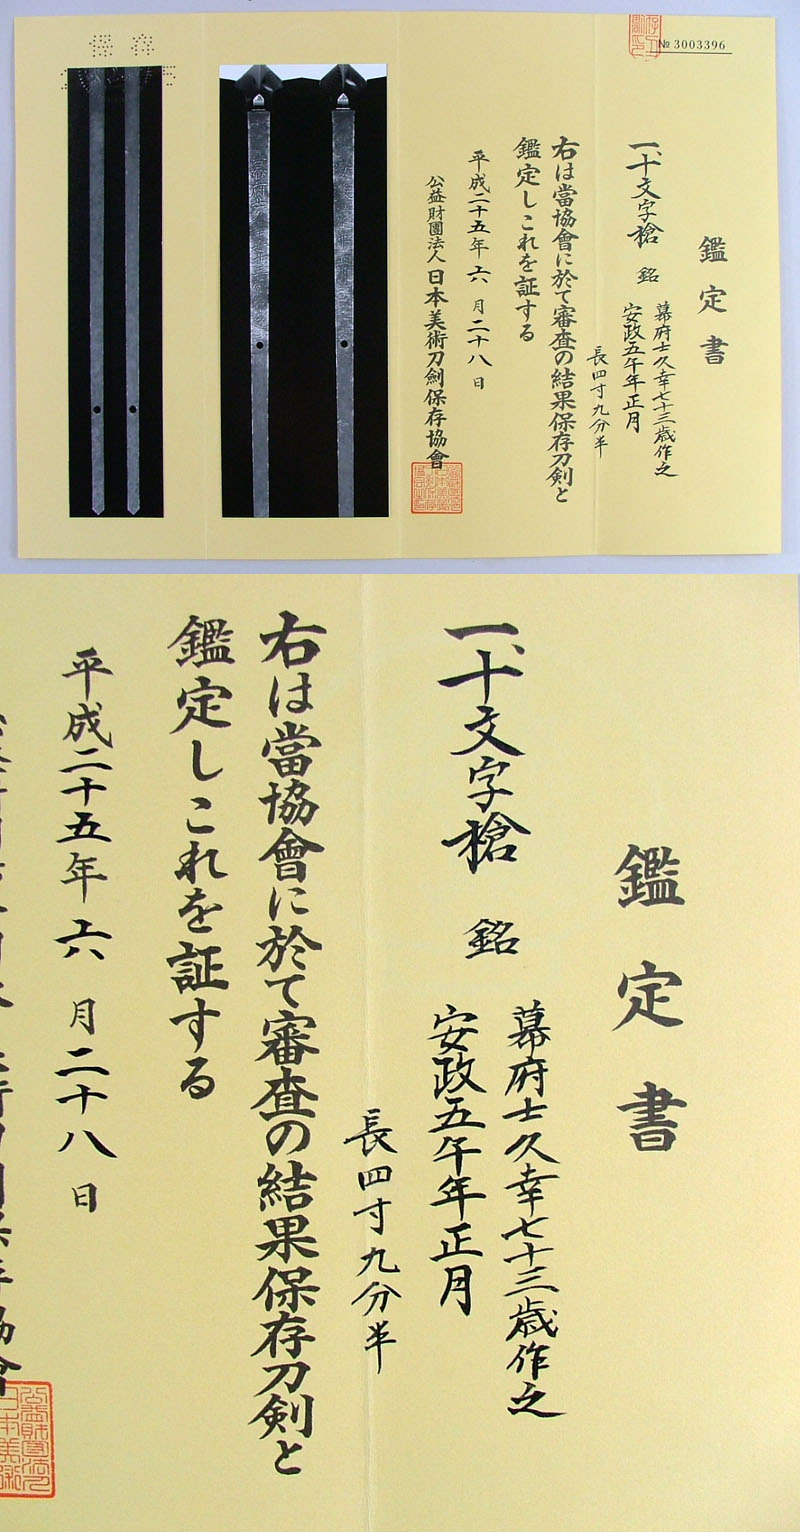 保存
№ 3003396
鑑定書
一、十文字槍 銘 幕府士久幸七十三歳作之
安政五午年正月
長四寸九分半
右は當協會に於て審査の結果保存刀剣と
鑑定しこれを証する
平成二十五年六月二十八日
公益財團法人日本美術刀劍保存協會
鑑定書
一、十文字槍 銘 幕府士久幸七十三歳作之
安政五午年正月
長四寸九分半
右は當協會に於て審査の結果保存刀剣と
鑑定しこれを証する
平成二十五年六月二十八日